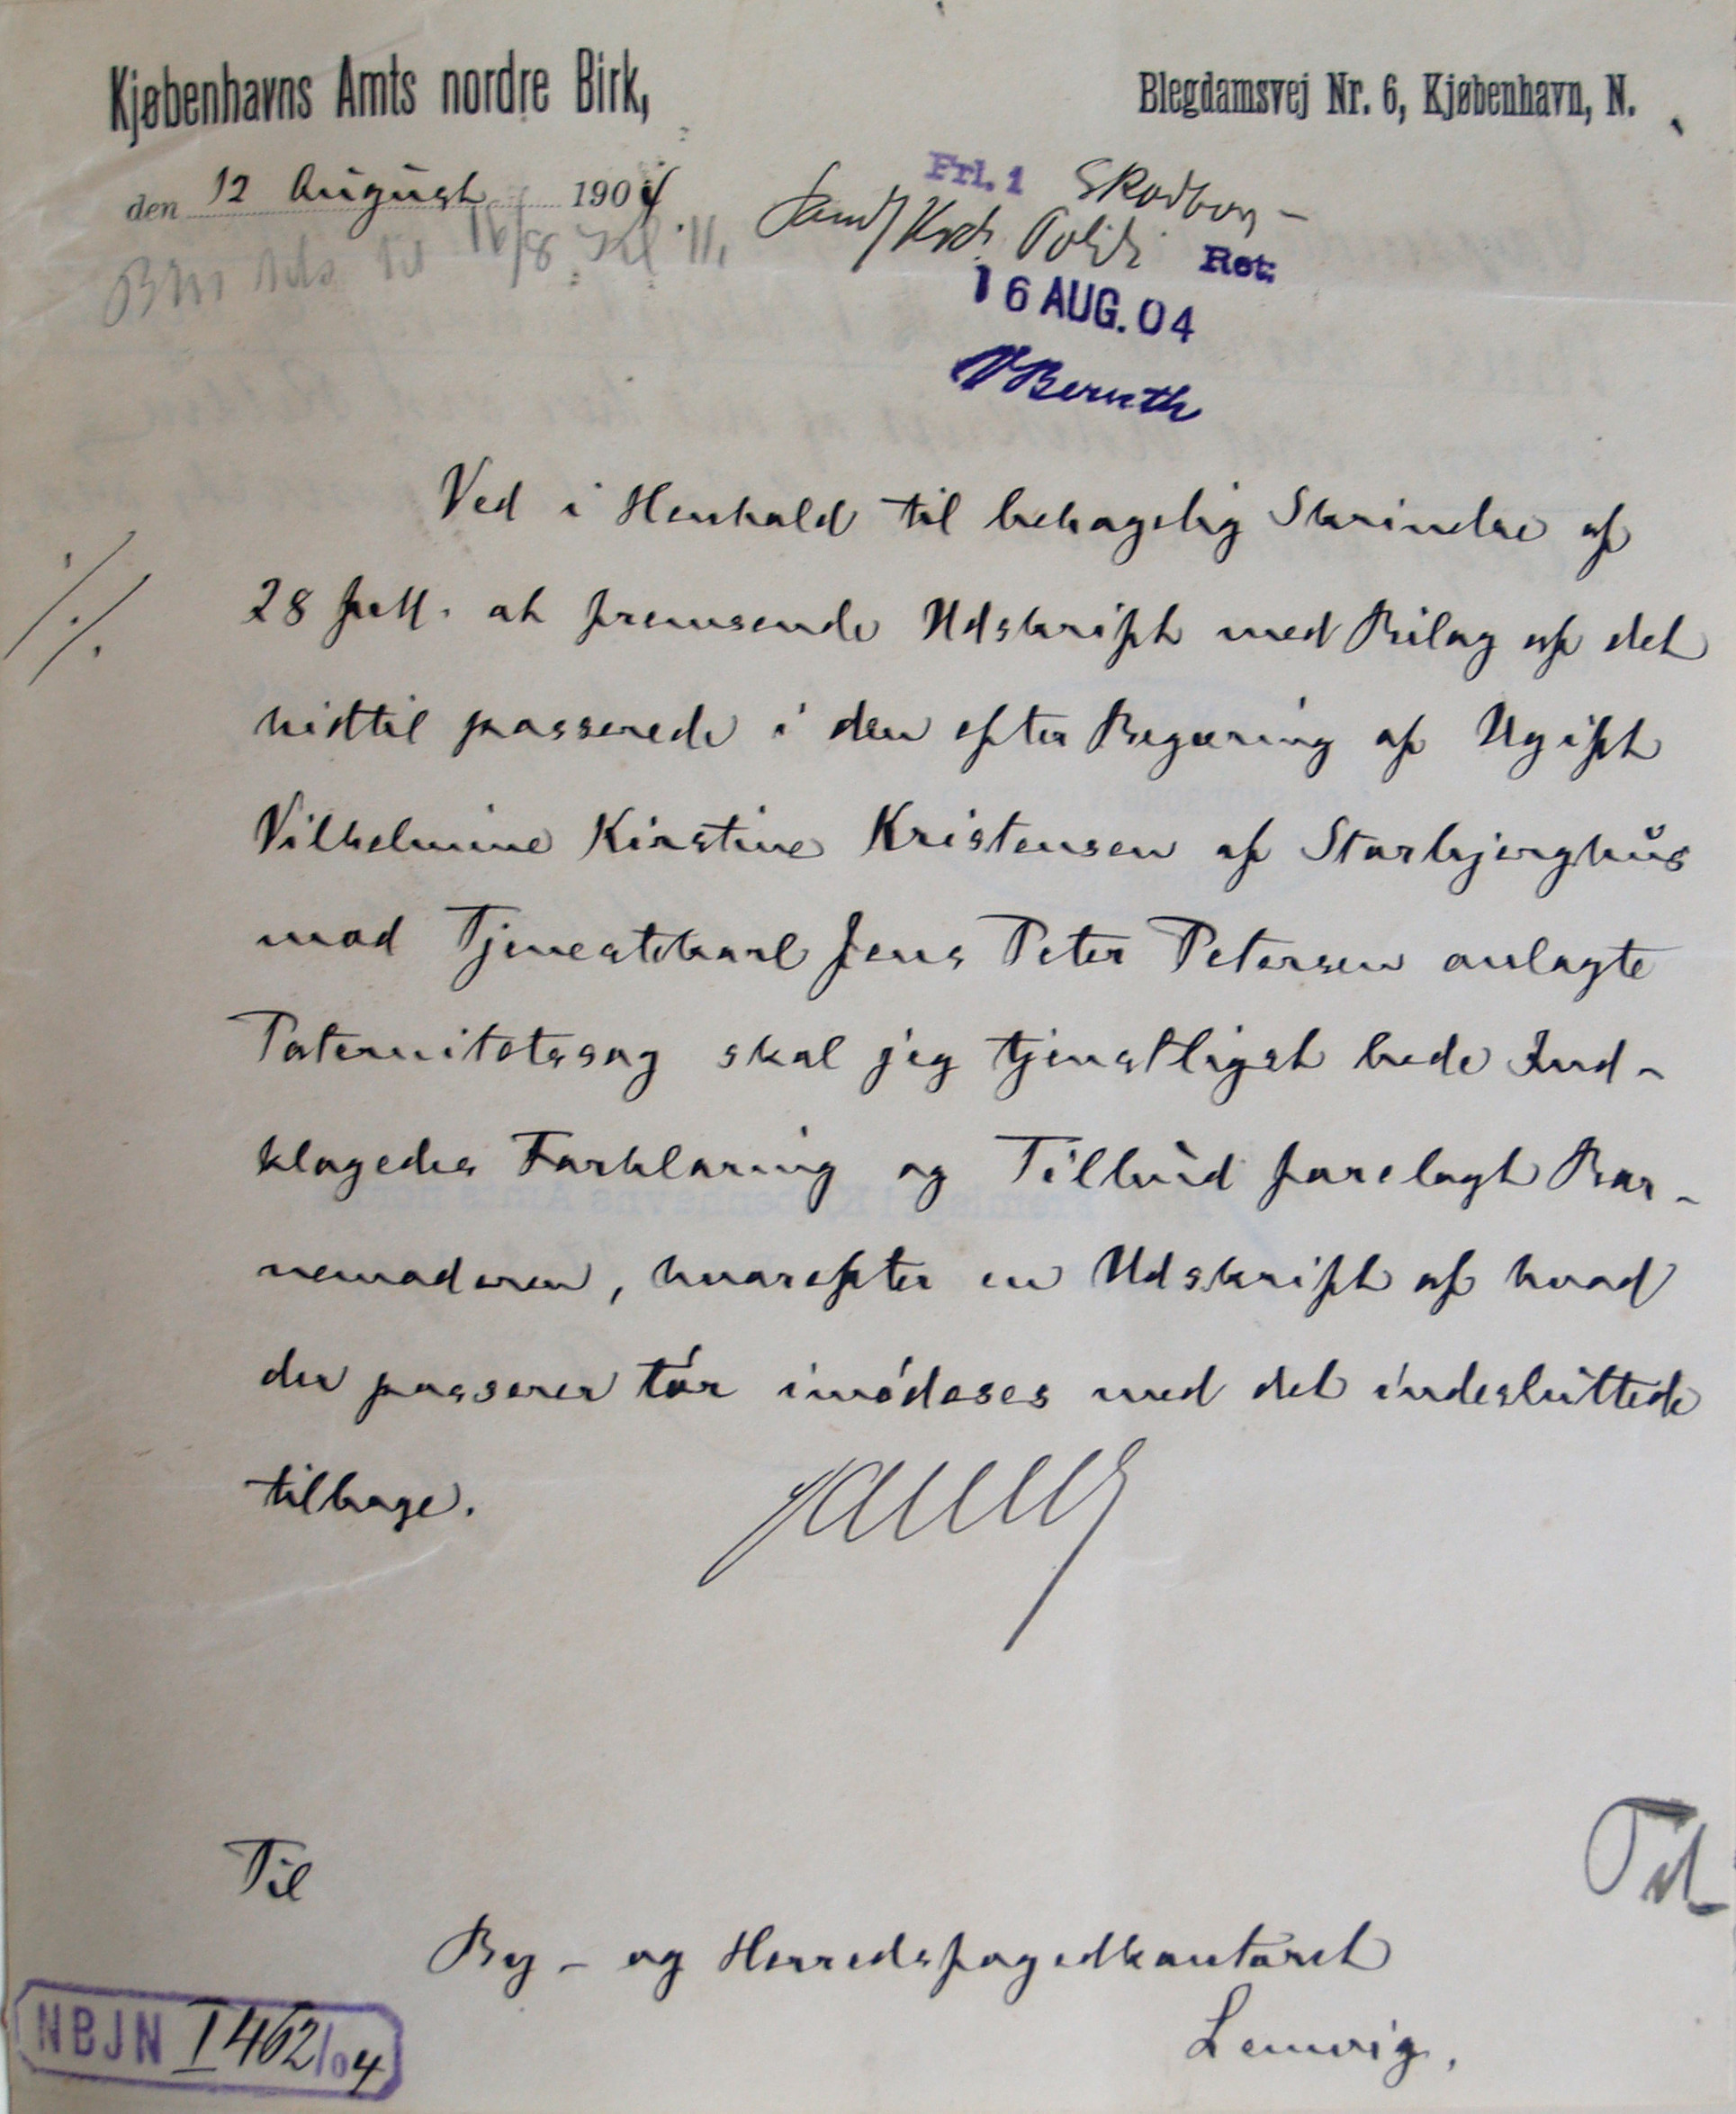 Kjøbenhavns Amts nordre Birk,
Blegdamsvej Nr. 6, Kjøbenhavn, N.
den 12 August 1904
Frl. 1 Skodborg-
Vand/Hrds Politi Ret:
16 AUG. 04
Beruth
Ved i Henhold til behagelig Skrivelse af
28 f. M. at fremsende Udskrift med Bilag af det
hidtil passerede i den efter Begæring af Ugift
Vilhelmine Kirstine Kristensen af Storbjerghus
mod Tjenestekarl Jens Peter Petersen anlagte
Paternitetssag skal jeg tjenstligst bede Ind-
klagedes Forklaring og Tilbud forelagt Bar-
nemoderen, hvorefter en Udskrift af hvad
der passerer tør imødeses med det indesluttede
tilbage.
Til
Til
By- og Herredsfogedkontoret
Lemvig.
NBJN I 462/04